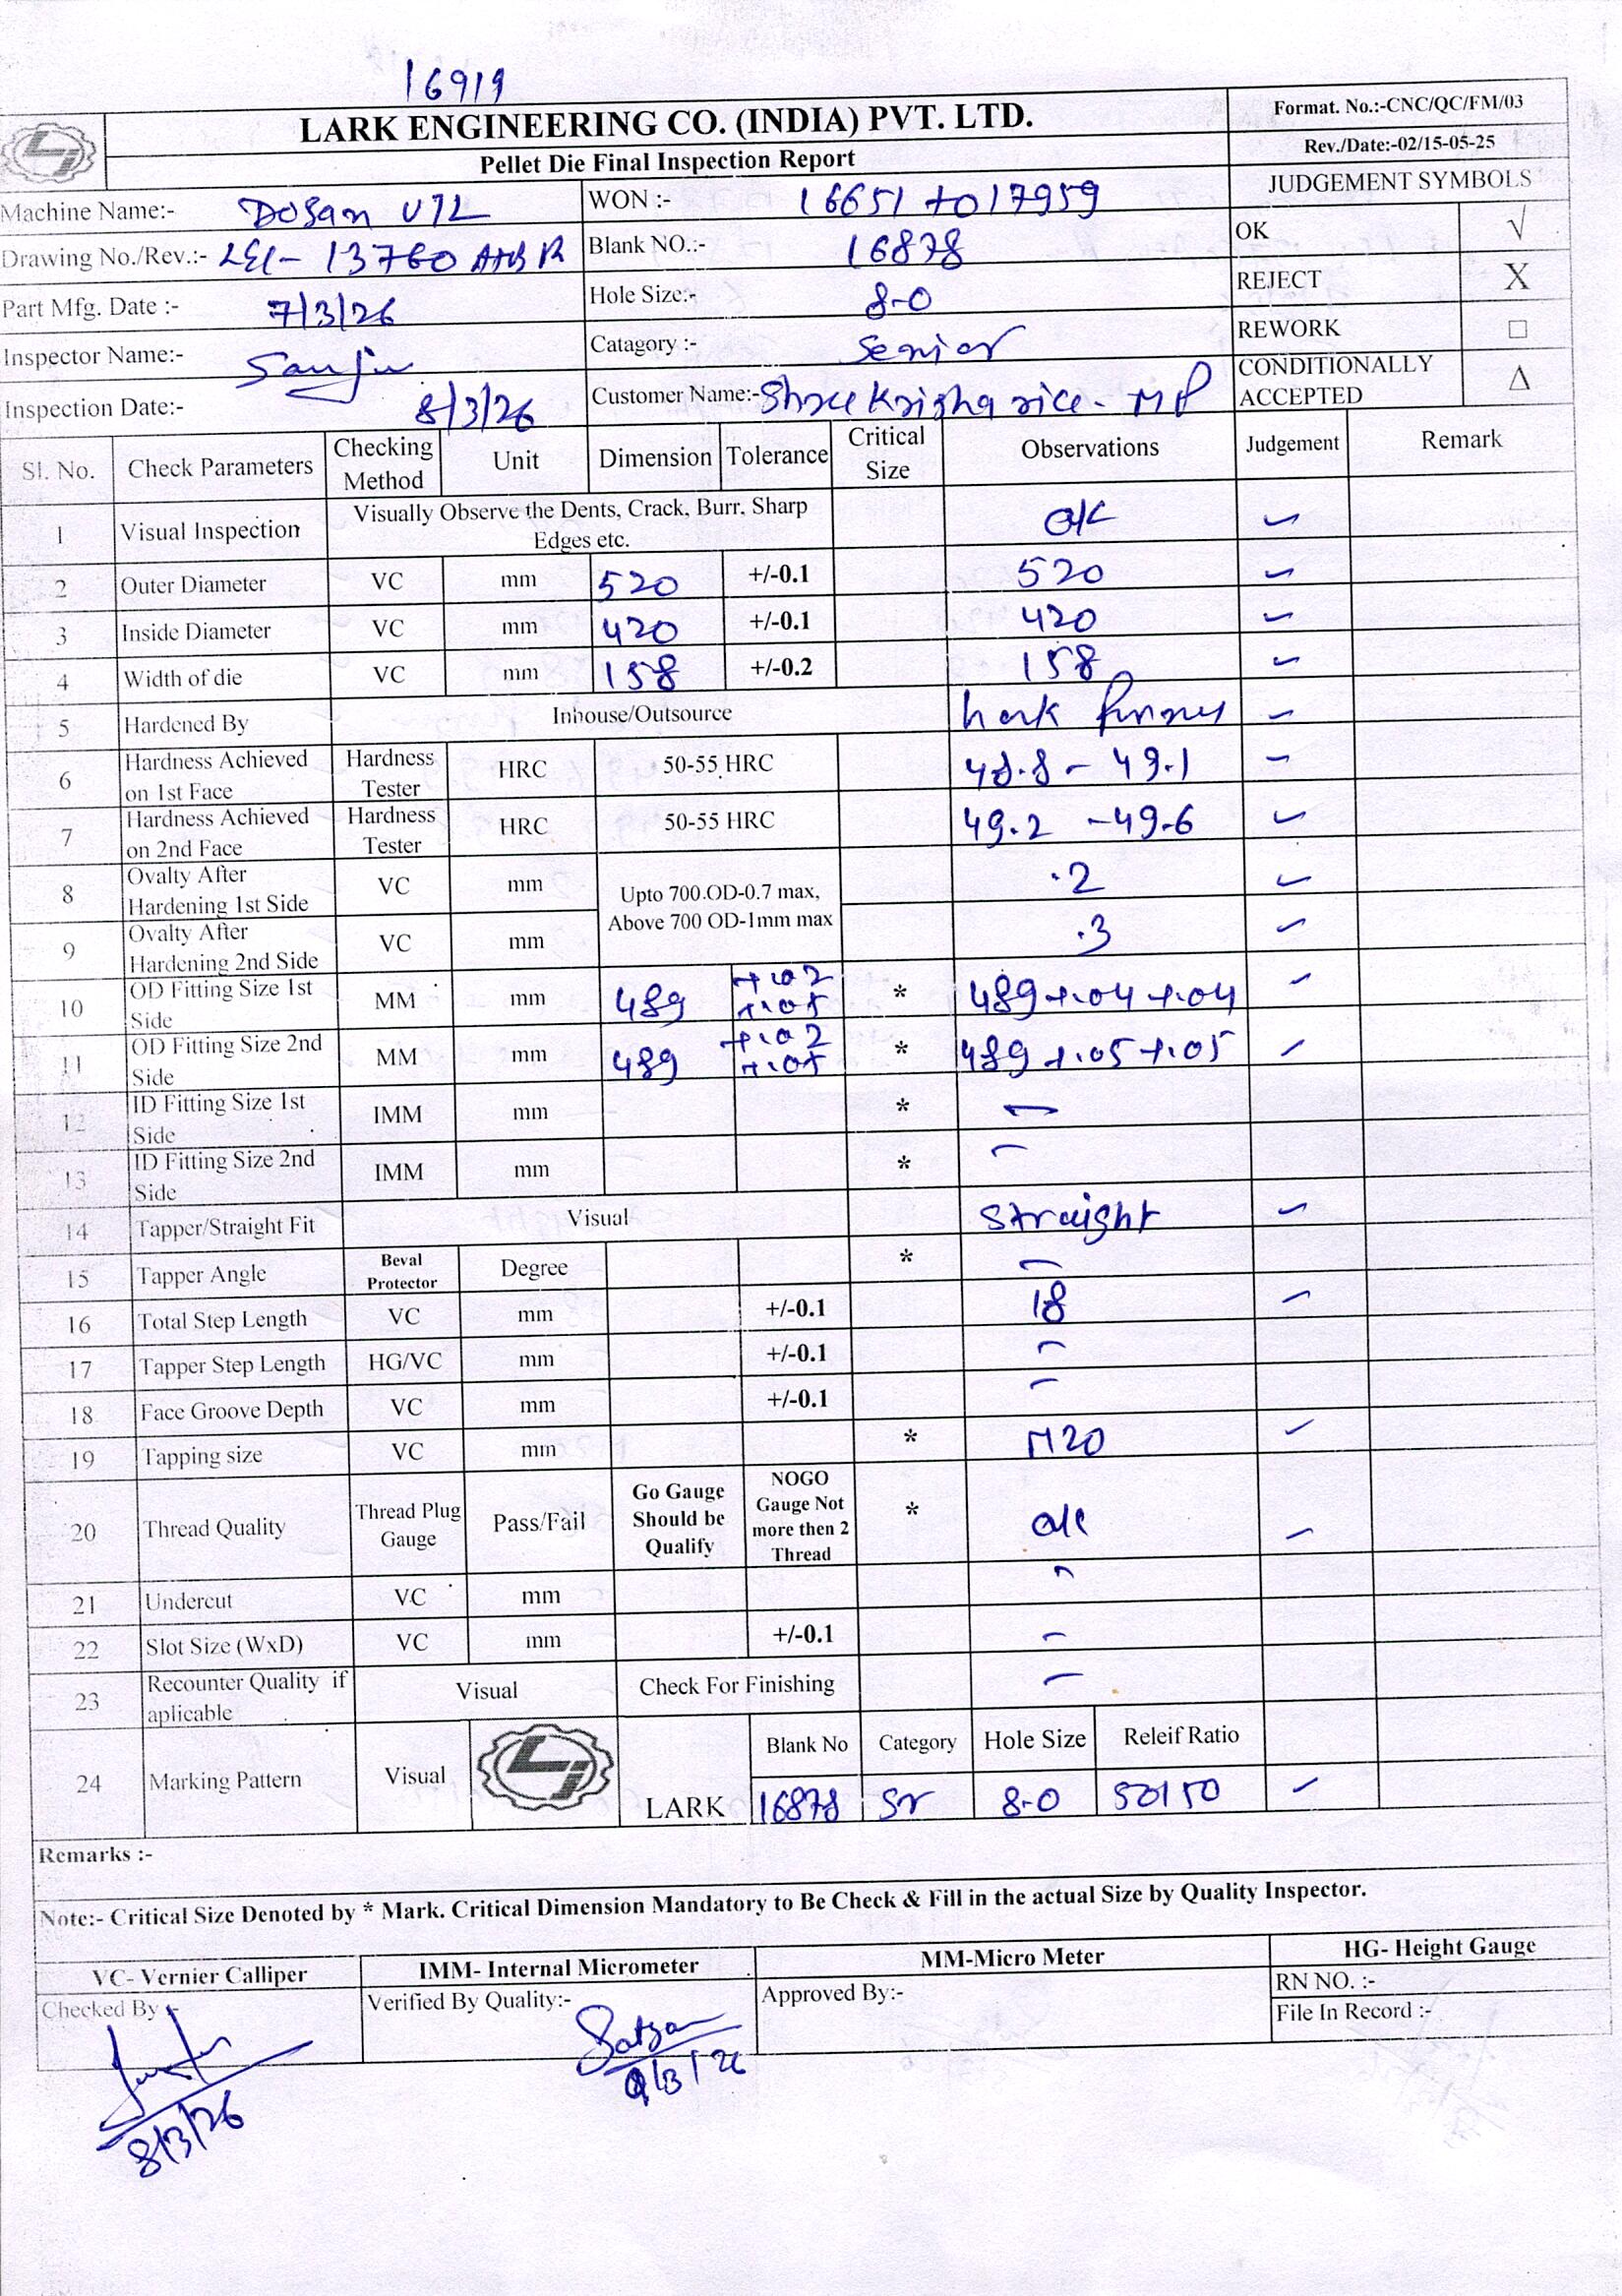 16919
LARK ENGINEERING CO. (INDIA) PVT. LTD.
Pellet Die Final Inspection Report
Format. No.:-CNC/QC/FM/03
Rev./Date:-02/15-05-25
JUDGEMENT SYMBOLS
Machine Name:- Dosan VTL
WON :- 16651 to 17959
OK √
Drawing No./Rev.:- LEI- 13760
Blank NO.:- 16878
REJECT X
Part Mfg. Date :- 7/3/26
Hole Size:- 8-0
REWORK □
Inspector Name:- Sanju
Catagory :- Senior
CONDITIONALLY ACCEPTED Δ
Inspection Date:- 8/3/26
Customer Name:- Shree Krisha rice - MP
Sl. No. Check Parameters Checking Method Unit Dimension Tolerance Critical Size Observations Judgement Remark
1 Visual Inspection Visually Observe the Dents, Crack, Burr, Sharp Edges etc. OK
2 Outer Diameter VC mm 520 +/-0.1 520
3 Inside Diameter VC mm 420 +/-0.1 420
4 Width of die VC mm 158 +/-0.2 158
5 Hardened By Inhouse/Outsource
6 Hardness Achieved on 1st Face Hardness Tester HRC 50-55 HRC 48.8 - 49.1
7 Hardness Achieved on 2nd Face Hardness Tester HRC 50-55 HRC 49.2 - 49.6
8 Ovalty After Hardening 1st Side VC mm Upto 700.OD-0.7 max, Above 700 OD-1mm max .2
9 Ovalty After Hardening 2nd Side VC mm .3
10 OD Fitting Size 1st Side MM mm 489 +.02 +.05 * 489 +.04 +.04
11 OD Fitting Size 2nd Side MM mm 489 +.02 +.05 * 489 +.05 +.05
12 ID Fitting Size 1st Side IMM mm * -
13 ID Fitting Size 2nd Side IMM mm * -
14 Tapper/Straight Fit Visual Straight
15 Tapper Angle Beval Protector Degree * -
16 Total Step Length VC mm +/-0.1 18
17 Tapper Step Length HG/VC mm +/-0.1 -
18 Face Groove Depth VC mm +/-0.1 -
19 Tapping size VC mm * M20
20 Thread Quality Thread Plug Gauge Pass/Fail Go Gauge Should be Qualify NOGO Gauge Not more then 2 Thread * OK
21 Undercut VC mm -
22 Slot Size (WxD) VC mm +/-0.1 -
23 Recounter Quality if aplicable Visual Check For Finishing -
24 Marking Pattern Visual LARK
Blank No Category Hole Size Releif Ratio
16878 Sr 8-0
Remarks :-
Note:- Critical Size Denoted by * Mark. Critical Dimension Mandatory to Be Check & Fill in the actual Size by Quality Inspector.
VC- Vernier Calliper IMM- Internal Micrometer MM-Micro Meter HG- Height Gauge
Checked By :- Verified By Quality:- Approved By:- RN NO. :-
File In Record :-
8/3/26